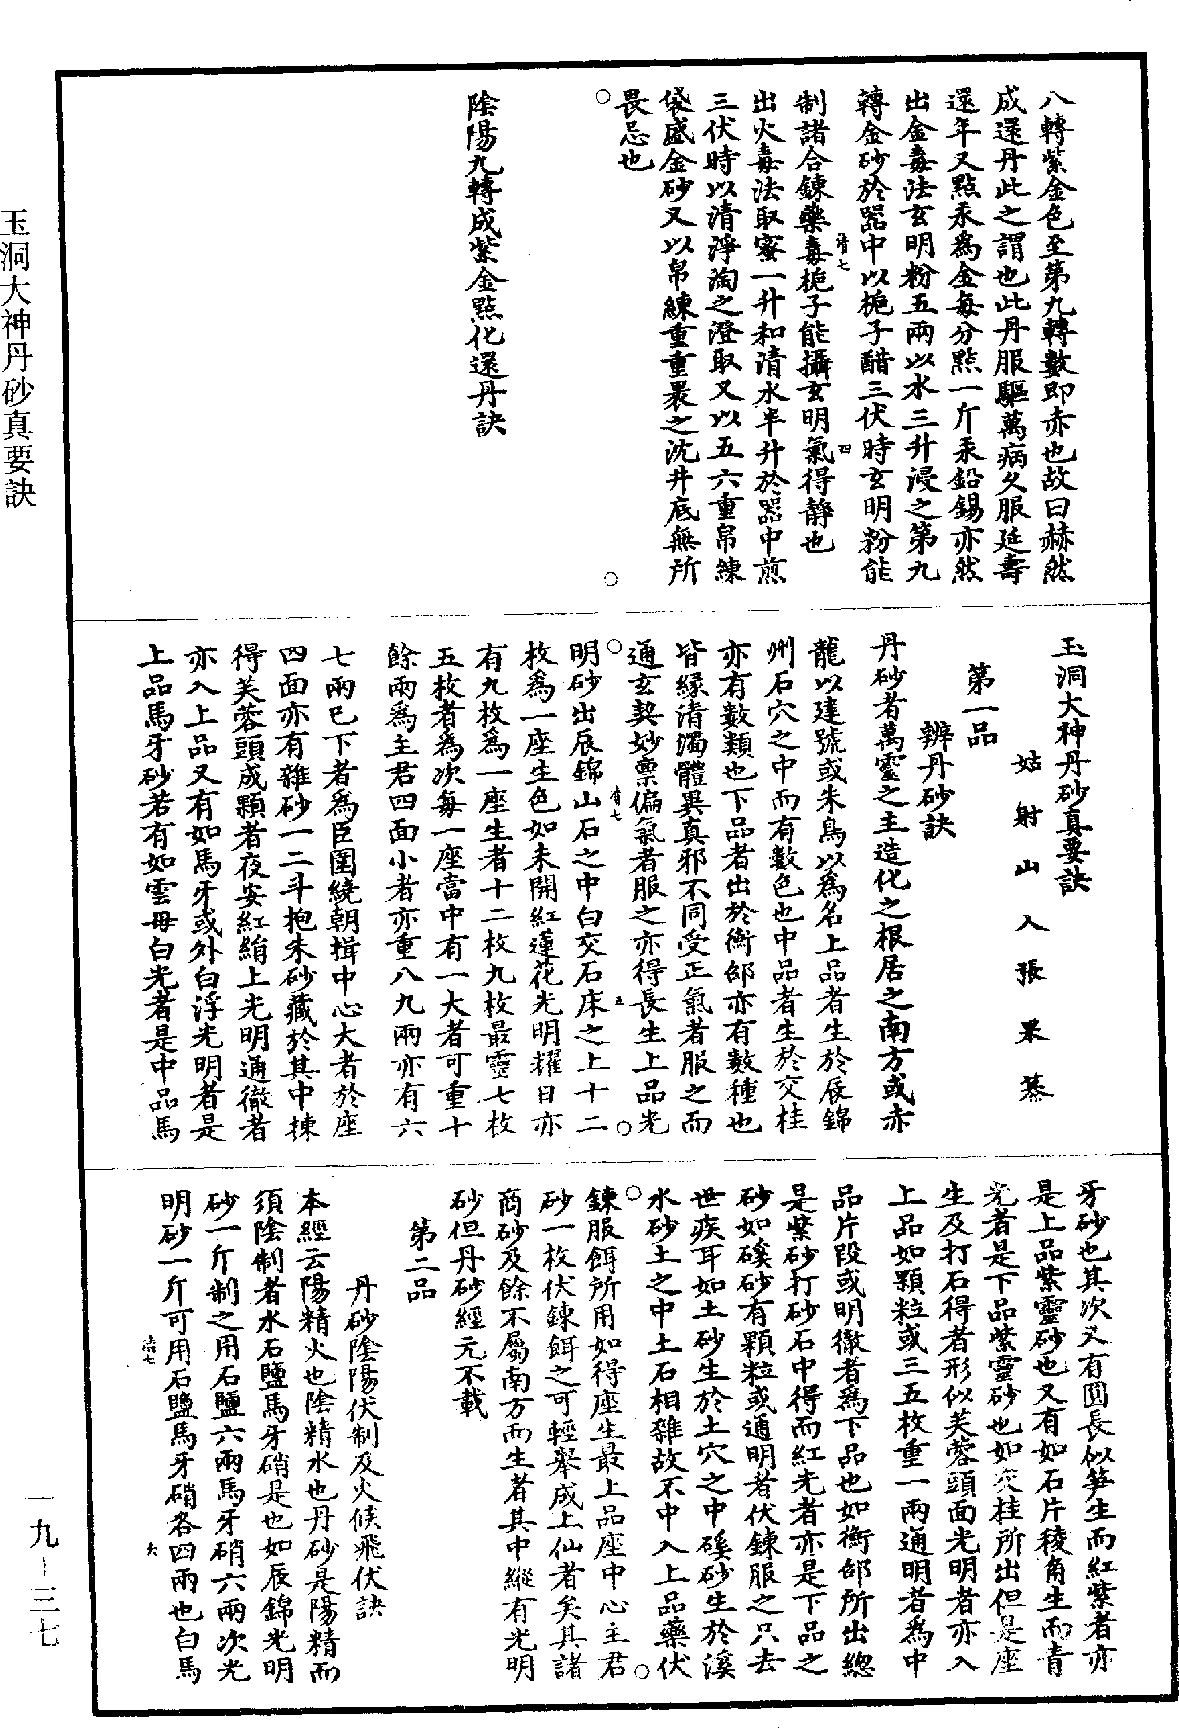 八轉紫金色至第九轉數即赤也故曰赫然
成還丹此之謂也此丹服驅萬病久服延壽
還年又點汞為金每分點一斤汞鉛錫亦然
出金毒法玄明粉五兩以水三升浸之第九
轉金砂於器中以梔子醋三伏時玄明粉能
制諸合鍊藥毒梔子能攝玄明氣得靜也
出火毒法取蜜一升和清水半升於器中煎
三伏時以清淨淘之澄取又以五六重帛練
袋盛金砂又以帛練重重裹之沈井底無所
畏忌也
陰陽九轉成紫金點化還丹訣
玉洞大神丹砂真要訣
姑射山人張果纂
第一品
辨丹砂訣
丹砂者萬靈之主造化之根居之南方或赤
龍以建號或朱鳥以為名上品者生於辰錦
州石穴之中而有數色也中品者生於交桂
亦有數類也下品者出於衡邵亦有數種也
皆緣清濁體異真邪不同受正氣者服之而
通玄契妙稟偏氣者服之亦得長生上品光
明砂出辰錦山石之中白交石床之上十二
枚為一座生色如未開紅蓮花光明耀日亦
有九枚為一座生者十二枚九枚最靈七枚
五枚者為次每一座當中有一大者可重十
餘兩為主君四面小者亦重八九兩亦有六
七兩已下者為臣圍繞朝揖中心大者於座
四面亦有雜砂一二斗抱朱砂藏於其中揀
得芙蓉頭成顆者夜安紅絹上光明通徹者
亦入上品又有如馬牙或外白浮光明者是
上品馬牙砂若有如雲母白光者是中品馬
牙砂也其次又有圓長似笋生而紅紫者亦
是上品紫靈砂也又有如石片稜角生而青
光者是下品紫靈砂也如交桂所出但是座
生及打石得者形似芙蓉頭面光明者亦入
上品如顆粒或三五枚重一兩通明者為中
品片段或明徹者為下品也如衡邵所出總
是紫砂打砂石中得而紅光者亦是下品之
砂如磎砂有顆粒或通明者伏鍊服之只去
世疾耳如土砂生於土穴之中磎砂生於溪
水砂土之中土石相雜故不中入上品藥伏
鍊服餌所用如得座生最上品座中心主君
砂一枚伏鍊餌之可輕舉成上仙者矣其諸
商砂及餘不屬南方而生者其中縱有光明
砂但丹砂經元不載
第二品
丹砂陰陽伏制及火候飛伏訣
本經云陽精火也陰精水也丹砂是陽精而
須陰制者水石鹽馬牙硝是也如辰錦光明
砂一斤制之用石鹽六兩馬牙硝六兩次光
明砂一斤可用石鹽馬牙硝各四兩也白馬
玉洞大神丹砂真要訣
一九-三七